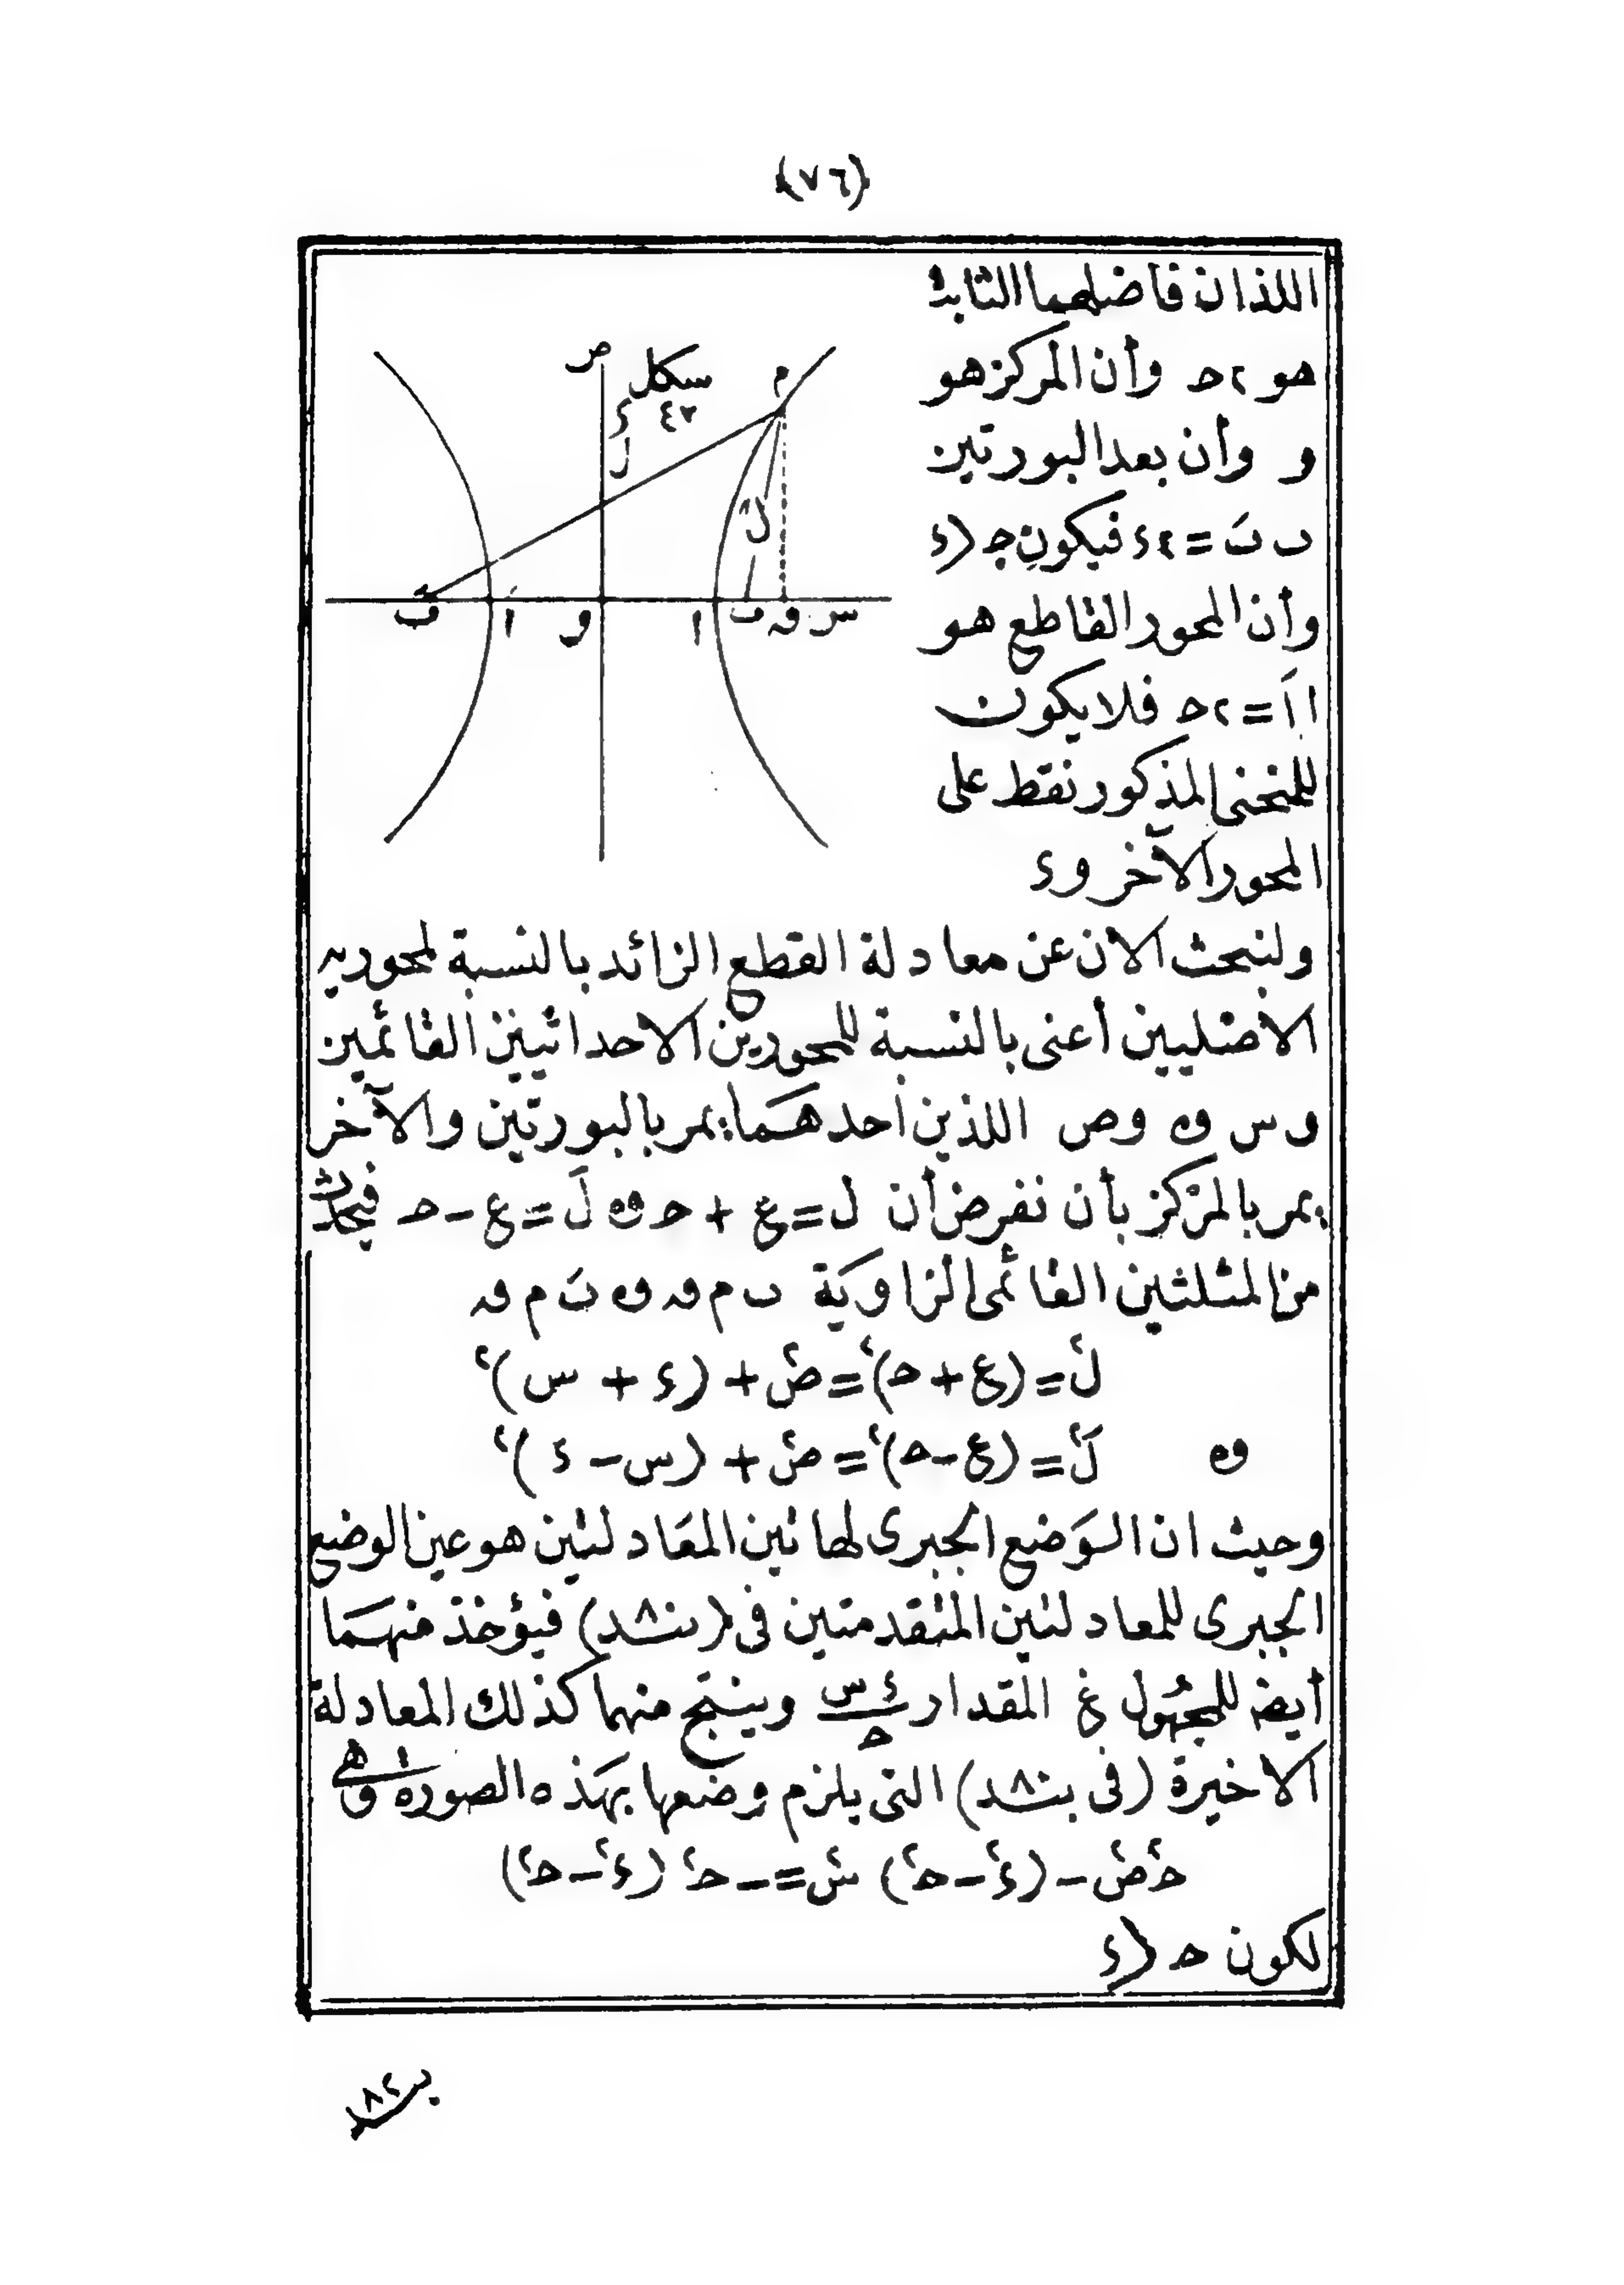 (٧٦)
اللذان فاضلهما الثابت
هو ٢ح وأن المركز هو
و وأن بعد البورتين
ب بَ = ٢ء فيكون ح﴿ء
وأن المحور القاطع هو
ا اَ = ٢ح فلا يكون
للمنحنى المذكور نقط على
المحور الآخر و ء
شكل
٤٢
ص
م
ء
ل
لَ
بَ اَ و ا ب ف س
ولنبحث الان عن معادلة القطع الزائد بالنسبة لمحوريه
الاصليين أعنى بالنسبة للمحورين الاحداثيين القائمين
وس و وص اللذين احدهما يمر بالبورتين والآخر
يمر بالمركز بأن نفرض أن ل = ع + ح و لَ = ع - ح فيحدث
من المثلثين القائمى الزاوية ب م ف و بَ م ف
ل٢ = (ع + ح)٢ = ص٢ + (ء + س)٢
و لَ٢ = (ع - ح)٢ = ص٢ + (س - ء)٢
وحيث ان الوضع الجبرى لهاتين المعادلتين هو عين الوضع
الجبرى للمعادلتين المتقدمتين فى (بند ٨٠) فيؤخذ منهما
أيضا للمجهول ع المقدار ء س / ح وينتج منهما كذلك المعادلة
الاخيرة (فى بند ٨٠) التى يلزم وضعها بهذه الصورة وهى
ح٢ص٢ - (ء٢ - ح٢) س٢ = - ح٢ (ء٢ - ح٢)
لكون ح﴿ء
بند ٨٢